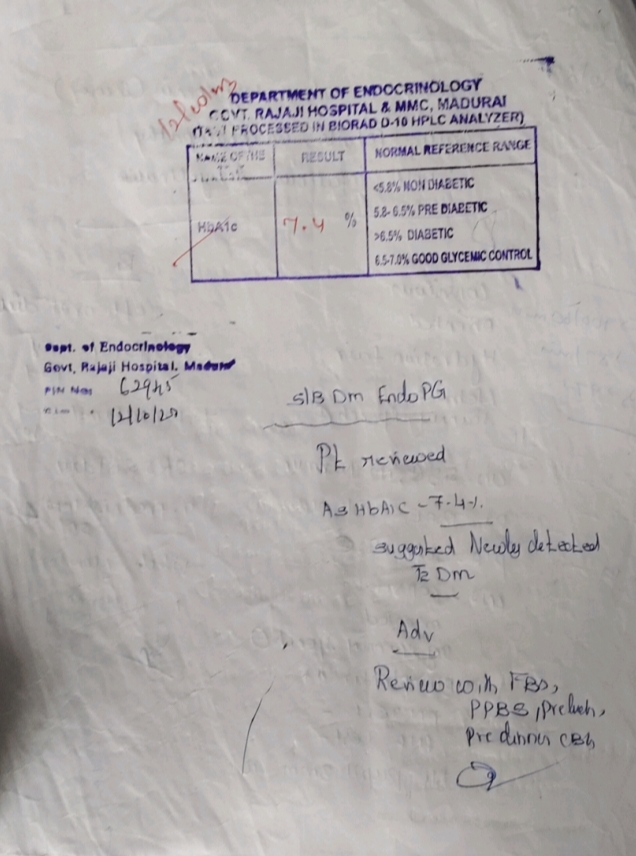 DEPARTMENT OF ENDOCRINOLOGY
GOVT. RAJAJI HOSPITAL & MMC, MADURAI
PROCESSED IN BIORAD D-10 HPLC ANALYZER)
NAME OF THE RESULT NORMAL REFERENCE RANGE
HbA1c 7.4 %
<5.8% NON DIABETIC
5.8-6.5% PRE DIABETIC
>6.5% DIABETIC
6.5-7.0% GOOD GLYCEMIC CONTROL
Dept. of Endocrinology
Govt, Rajaji Hospital. Madurai
PIN No:
12/10/20
S/B Dm Endo PG
Pt reviewed
As HbA1C - 7.4%.
suggested Newly detected
T2 Dm
Adv
Review with FBS,
PPBS, Prelunch,
Pre dinner CBG